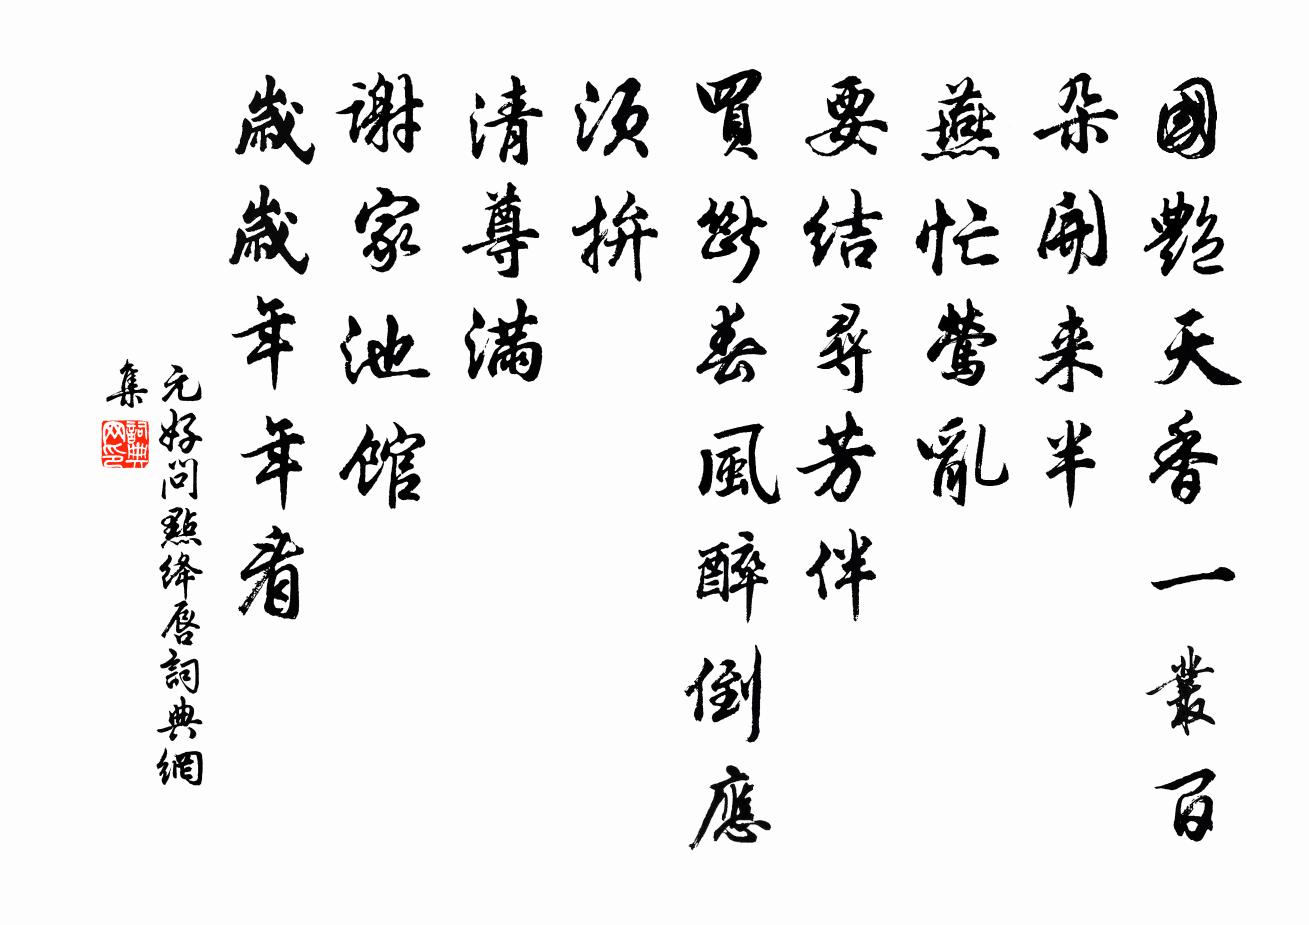 國艷天香一叢百
朵開来半
燕忙鶯亂
要結尋芳伴
買斷春風醉倒應
須拚
清尊滿
謝家池館
歲歲年年看
元好問點絳唇詞典網
集
詞典网印